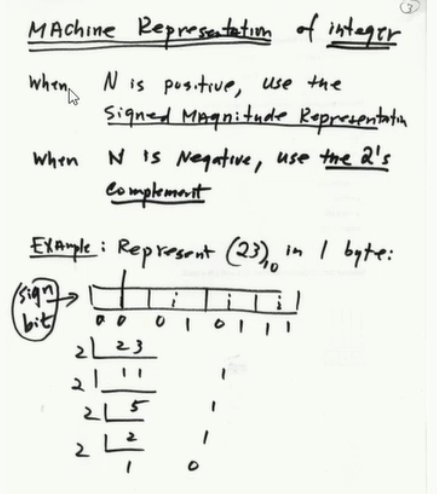 ③
MAchine Representation of integer
When N is positive, use the
Signed MAgnitude Representatin
When N is Negative, use the 2's
Complement
EXAmple: Represent (23)10 in 1 byte:
sign bit
0 0 0 1 0 1 1 1
2 23
2 11 1
2 5 1
2 2 1
1 0